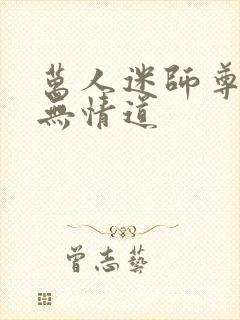 萬人迷師尊
無情道
曾志藝